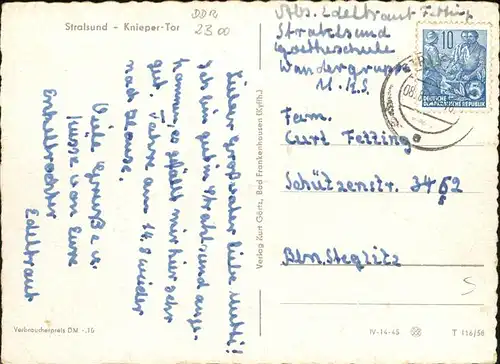 Stralsund – Knieper-Tor
DDR
23 00
Abs. Edeltraut Fetting
Stralsund
Goetheschule
Wandergruppe
DEUTSCHE
DEMOKRATISCHE REPUBLIK
10
5
Fam.
Curt Fetting
Schützenstr. 3462
Bln. Steglitz
Lieber Großvater liebe Mutti!
Ich bin gut in Stralsund ange-
kommen, es gefällt mir hier sehr
gut. Fahre am 14.8 wieder
nach Hause.
Viele Grüße u.
Küsse von Eure
Enkeltochter
Edeltraut
Verlag Kurt Görtz, Bad Frankenhausen (Kyffh.)
Verbraucherpreis DM -,15
IV-14-45
T 116/56
S